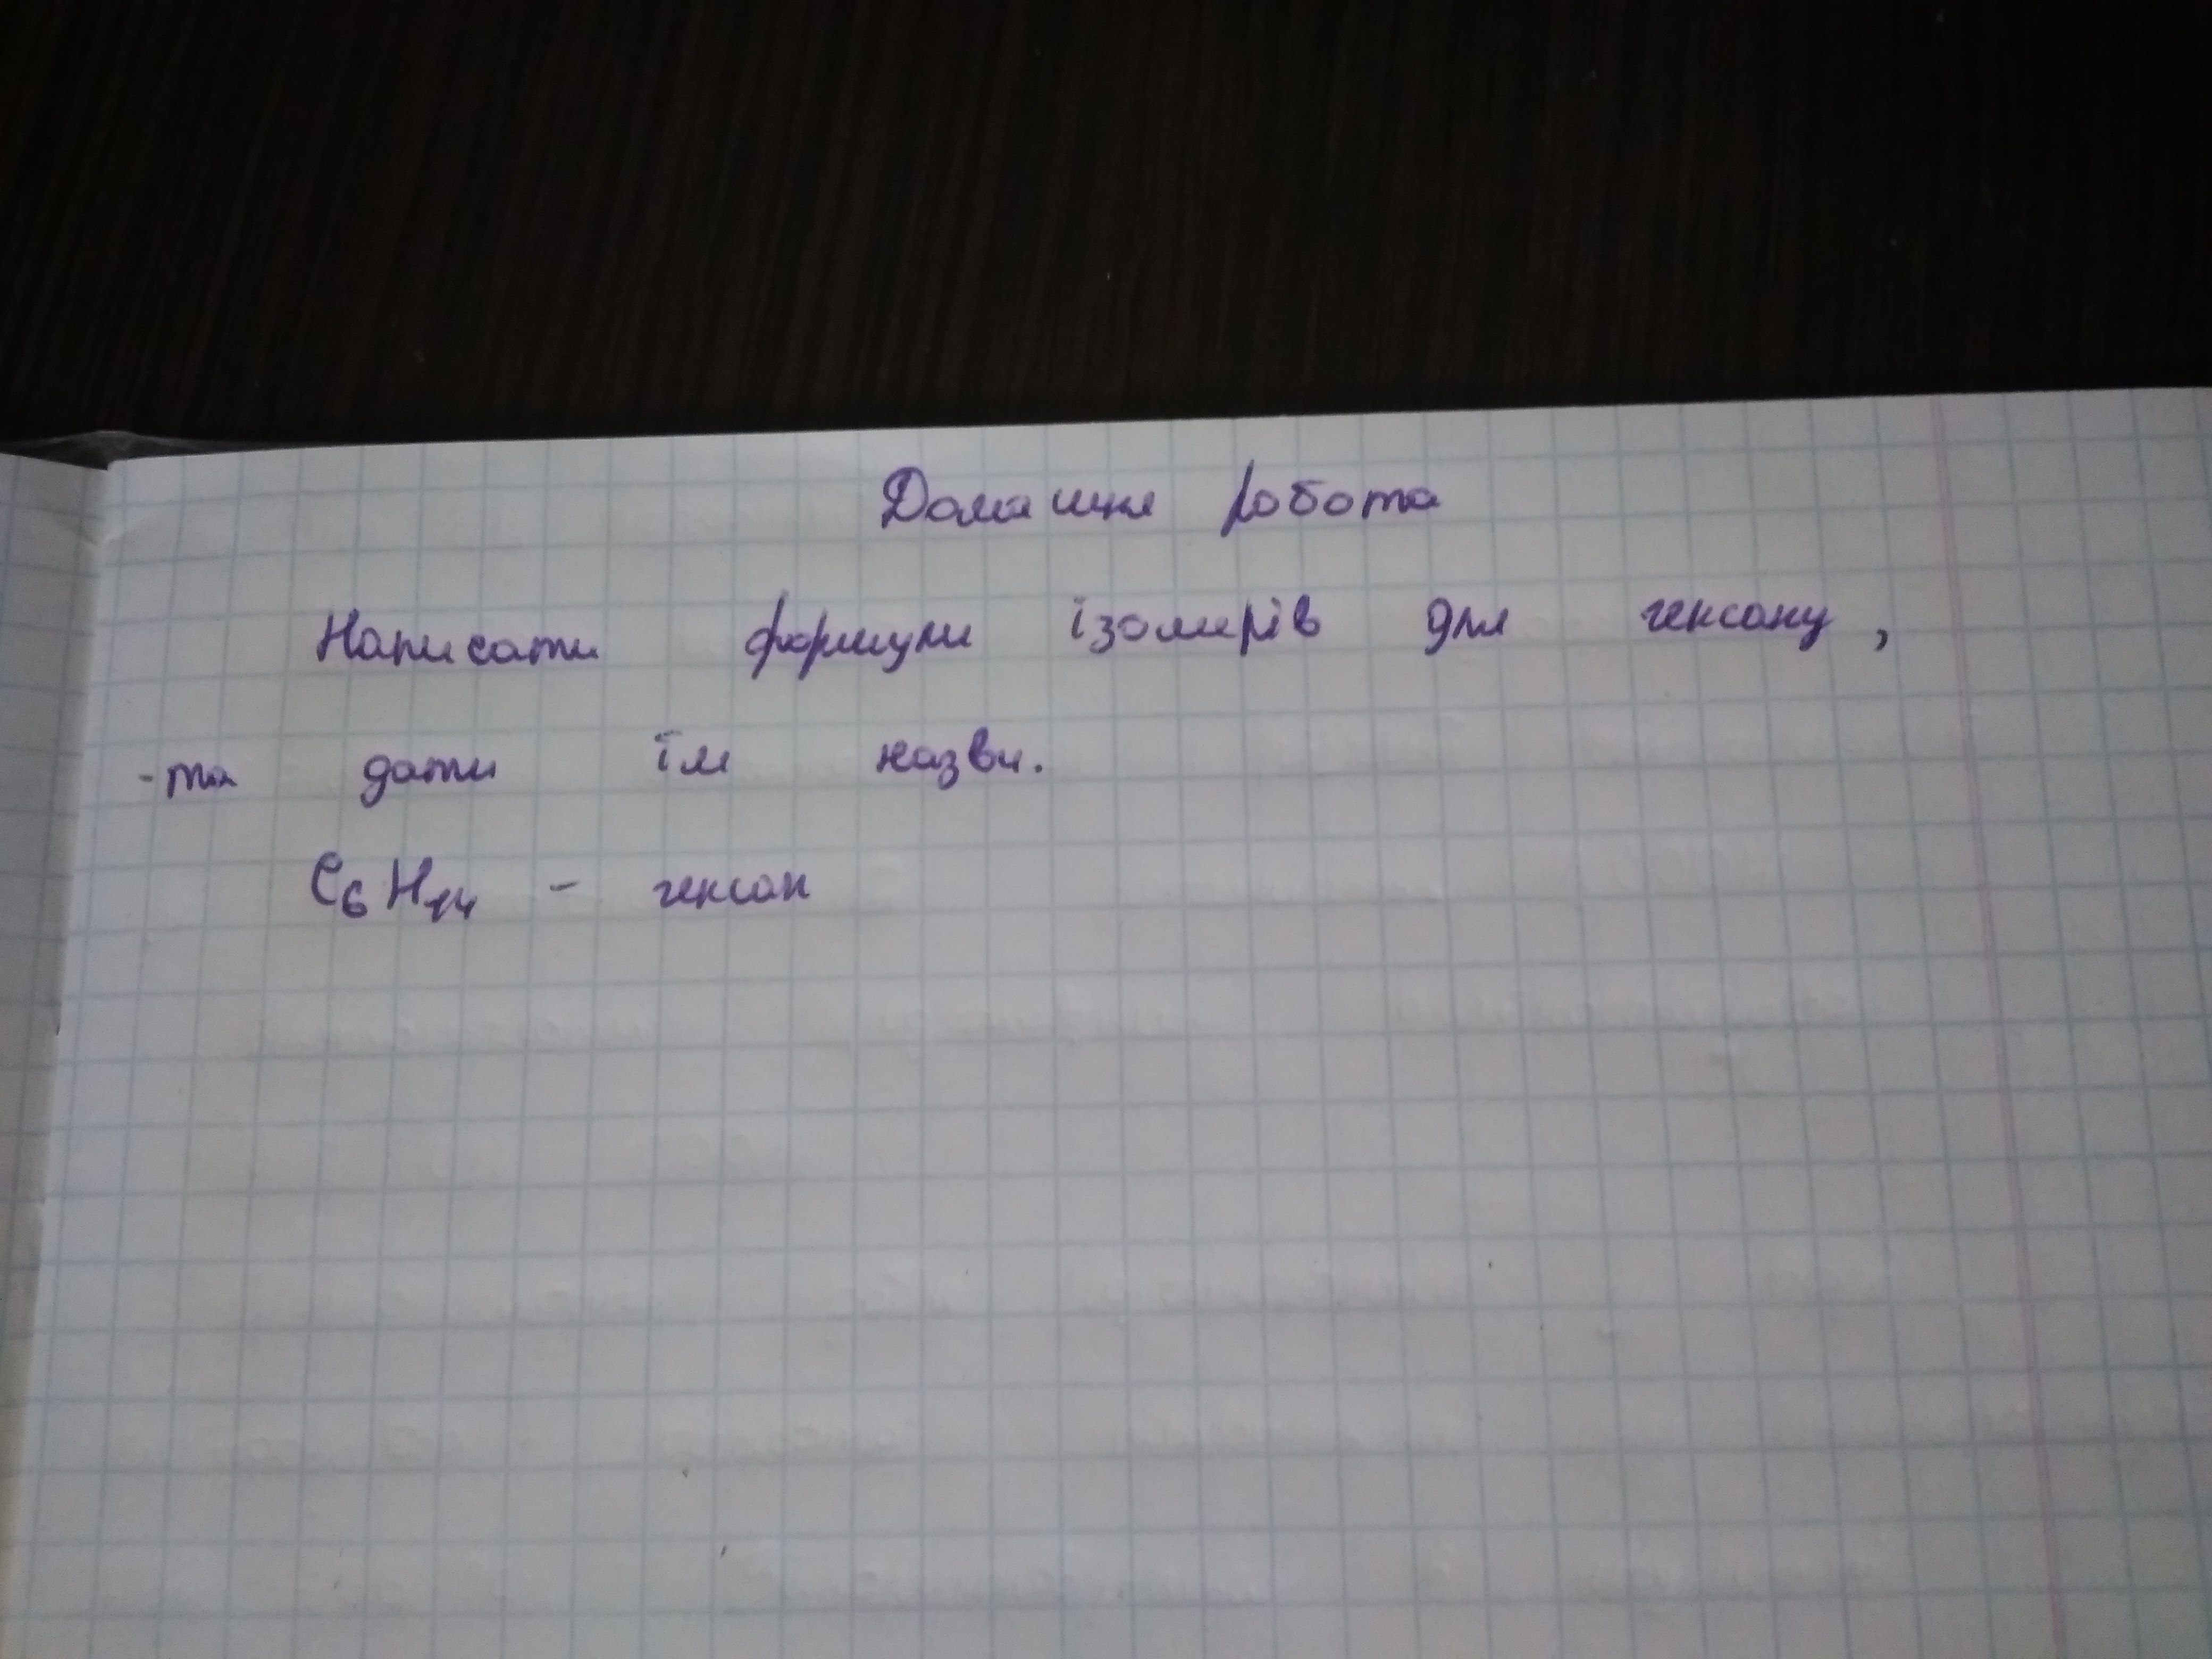 Домашня робота
Написати формули ізомерів для гексану,
та дати їм назви.
C₆H₁₄ - гексан